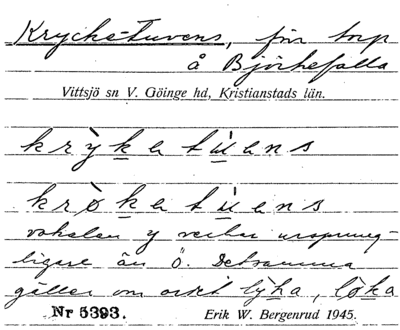 Krycke-Tuvens, förr torp
å Björkefalla
Vittsjö sn V. Göinge hd, Kristianstads län.
krỳkatùans
kròkatùans
vokalen y verkar ursprung-
ligare än ö. Detsamma
gäller om ordet lyka, löka
Nr 5393. Erik W. Bergenrud 1945.